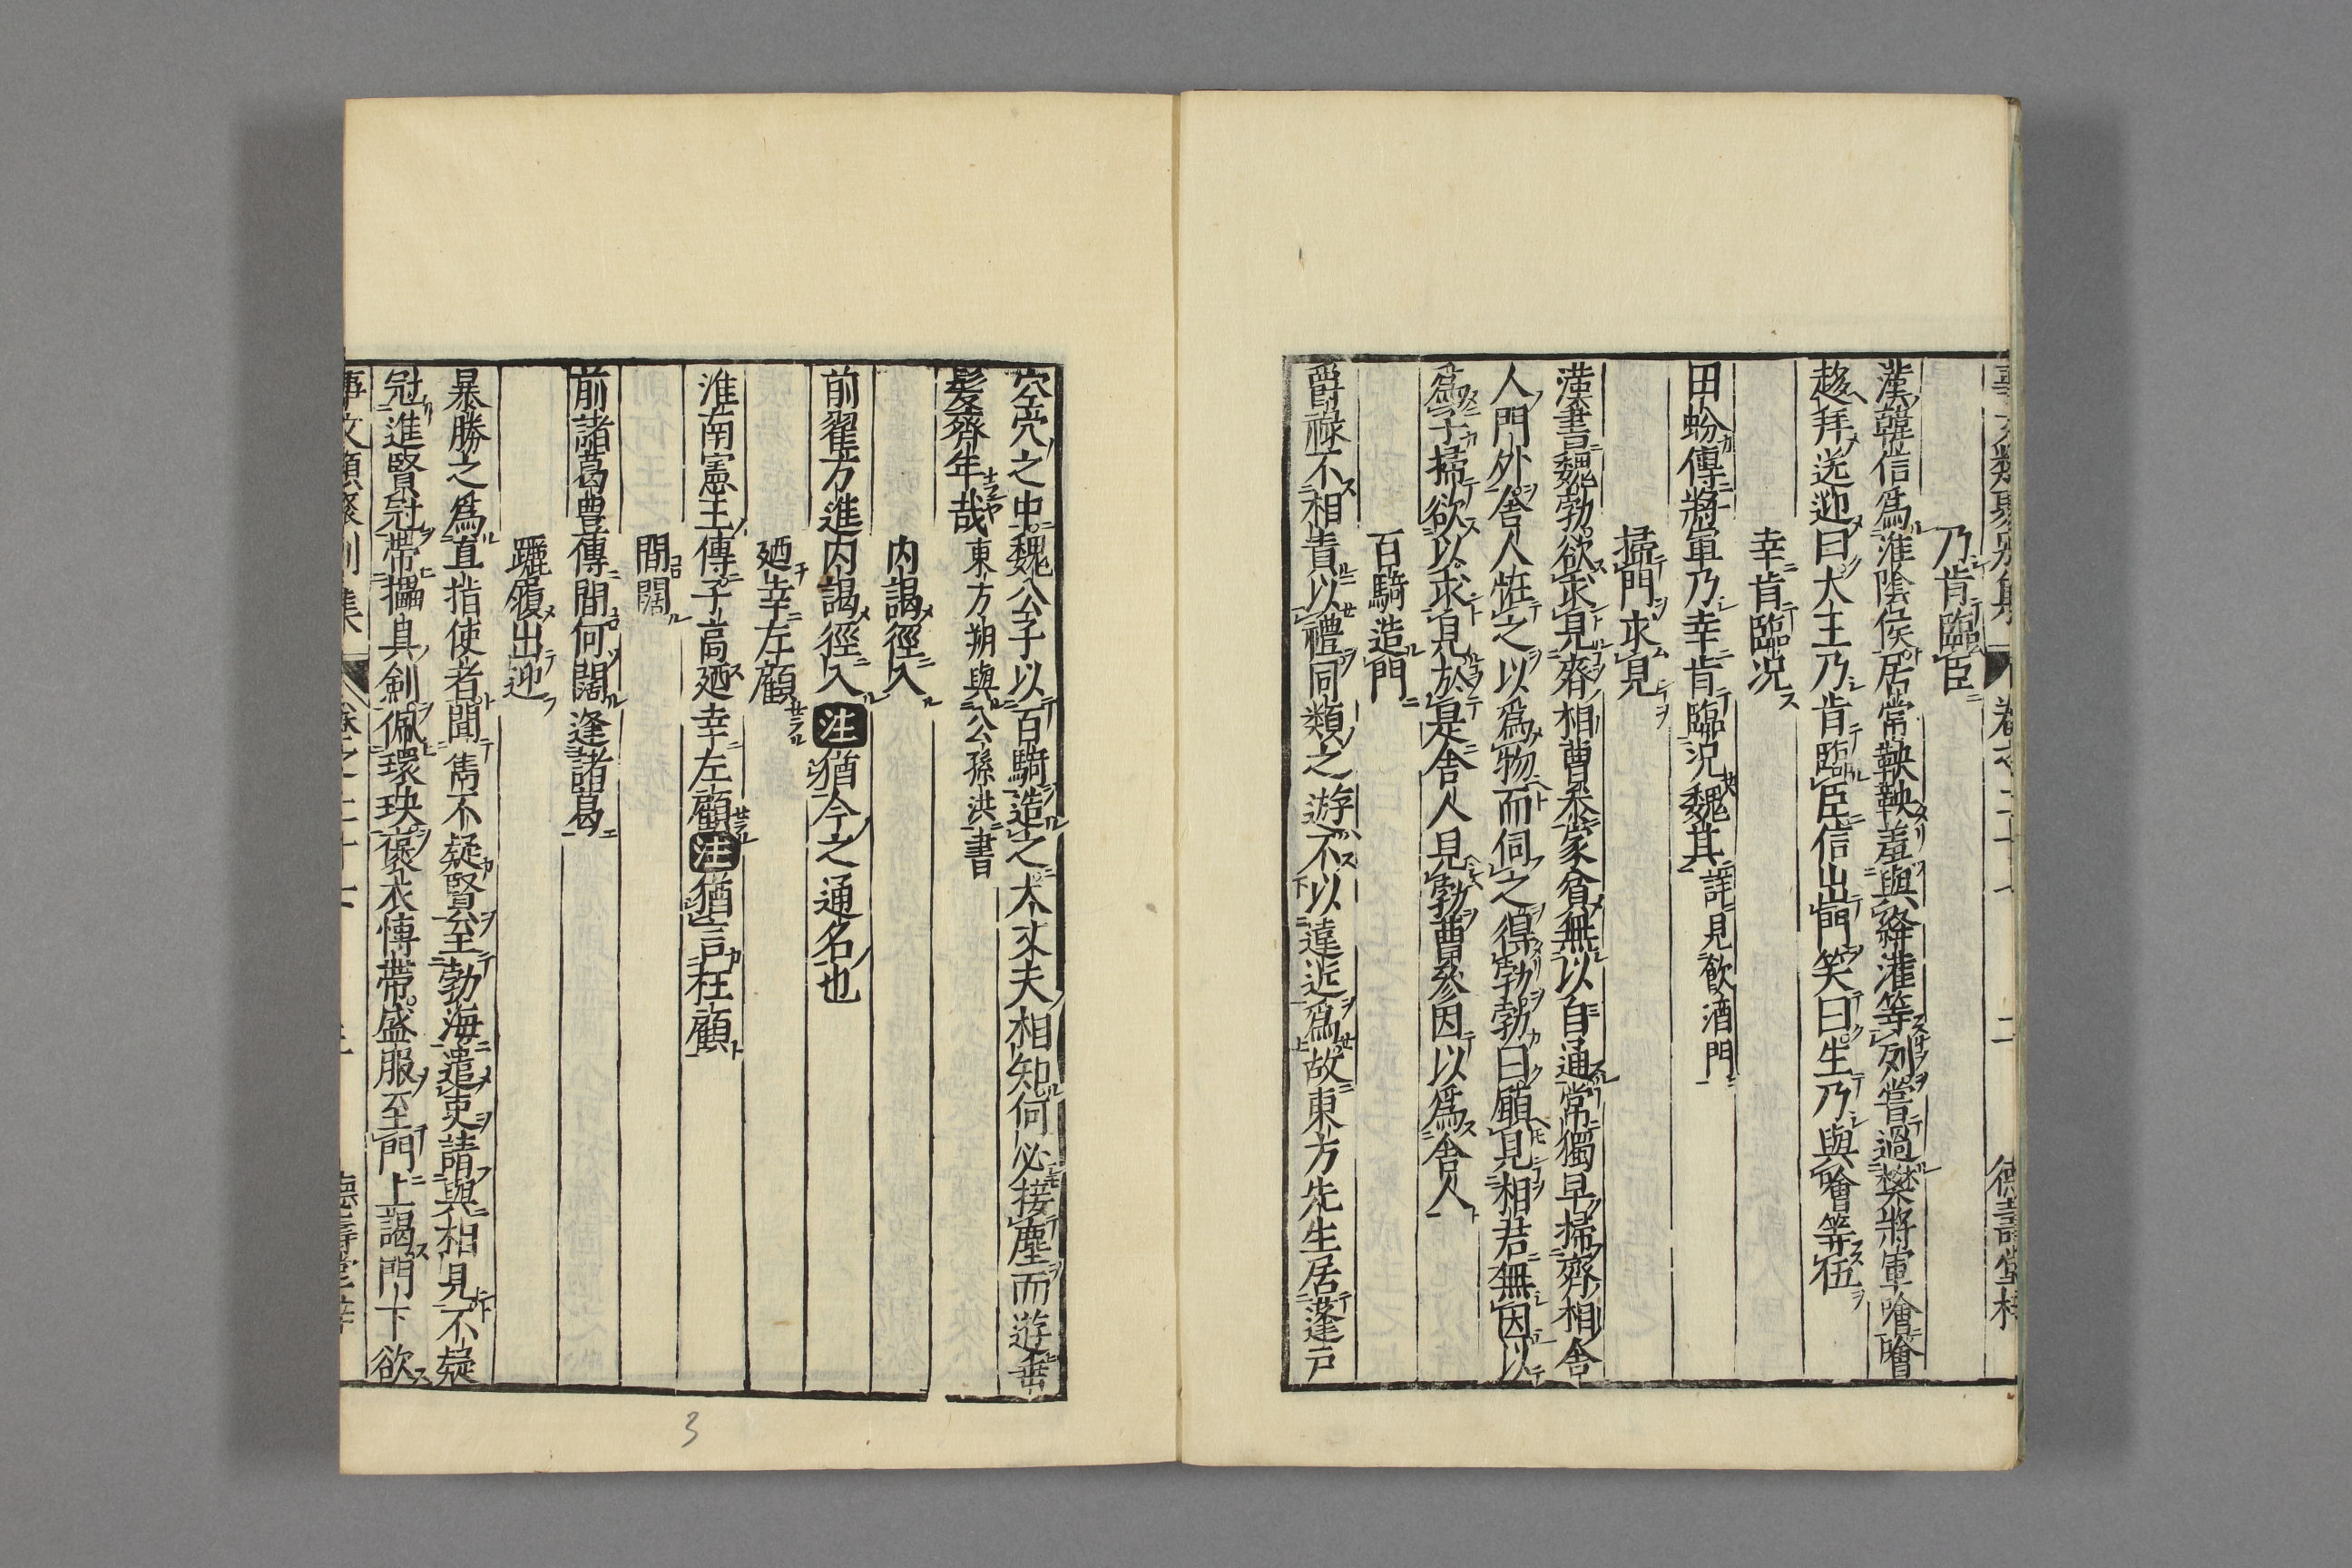 乃肯臨臣
漢韓信爲淮陰侯居常鞅鞅羞與絳灌等列嘗過樊將軍噲噲
趍拜送迎曰大王乃肯臨臣信出門笑曰生乃與噲等伍
幸肯臨况
田蚡傳將軍乃幸肯臨况魏其詳見飲酒門
掃門求見
漢書魏勃欲求見齊相曹參家貧無以自通常獨早掃齊相舍
人門外舍人恠之以爲物而伺之得勃勃曰願見相君無因以
爲子掃欲以求見於是舍人見勃曹參因以爲舍人
百騎造門
爵祿不相責以禮同類之遊不以遠近爲故東方先生居蓬戸
空穴之中魏公子以百騎造之大丈夫相知何必接塵而遊垂
髮齊年哉東方朔與公孫洪書
内謁徑入
前翟方進内謁徑入注猶今之通名也
廼幸左顧
淮南憲王傳子高廼幸左顧注猶言枉顧
間闊
前諸葛豊傳間何闊逢諸葛
躧履出迎
暴勝之爲直指使者聞雋不疑賢至勃海遣吏請與相見不疑
冠進賢冠帶櫑具劍佩環玦褒衣愽帶盛服至門上謁門下欲
事文類聚别集
3